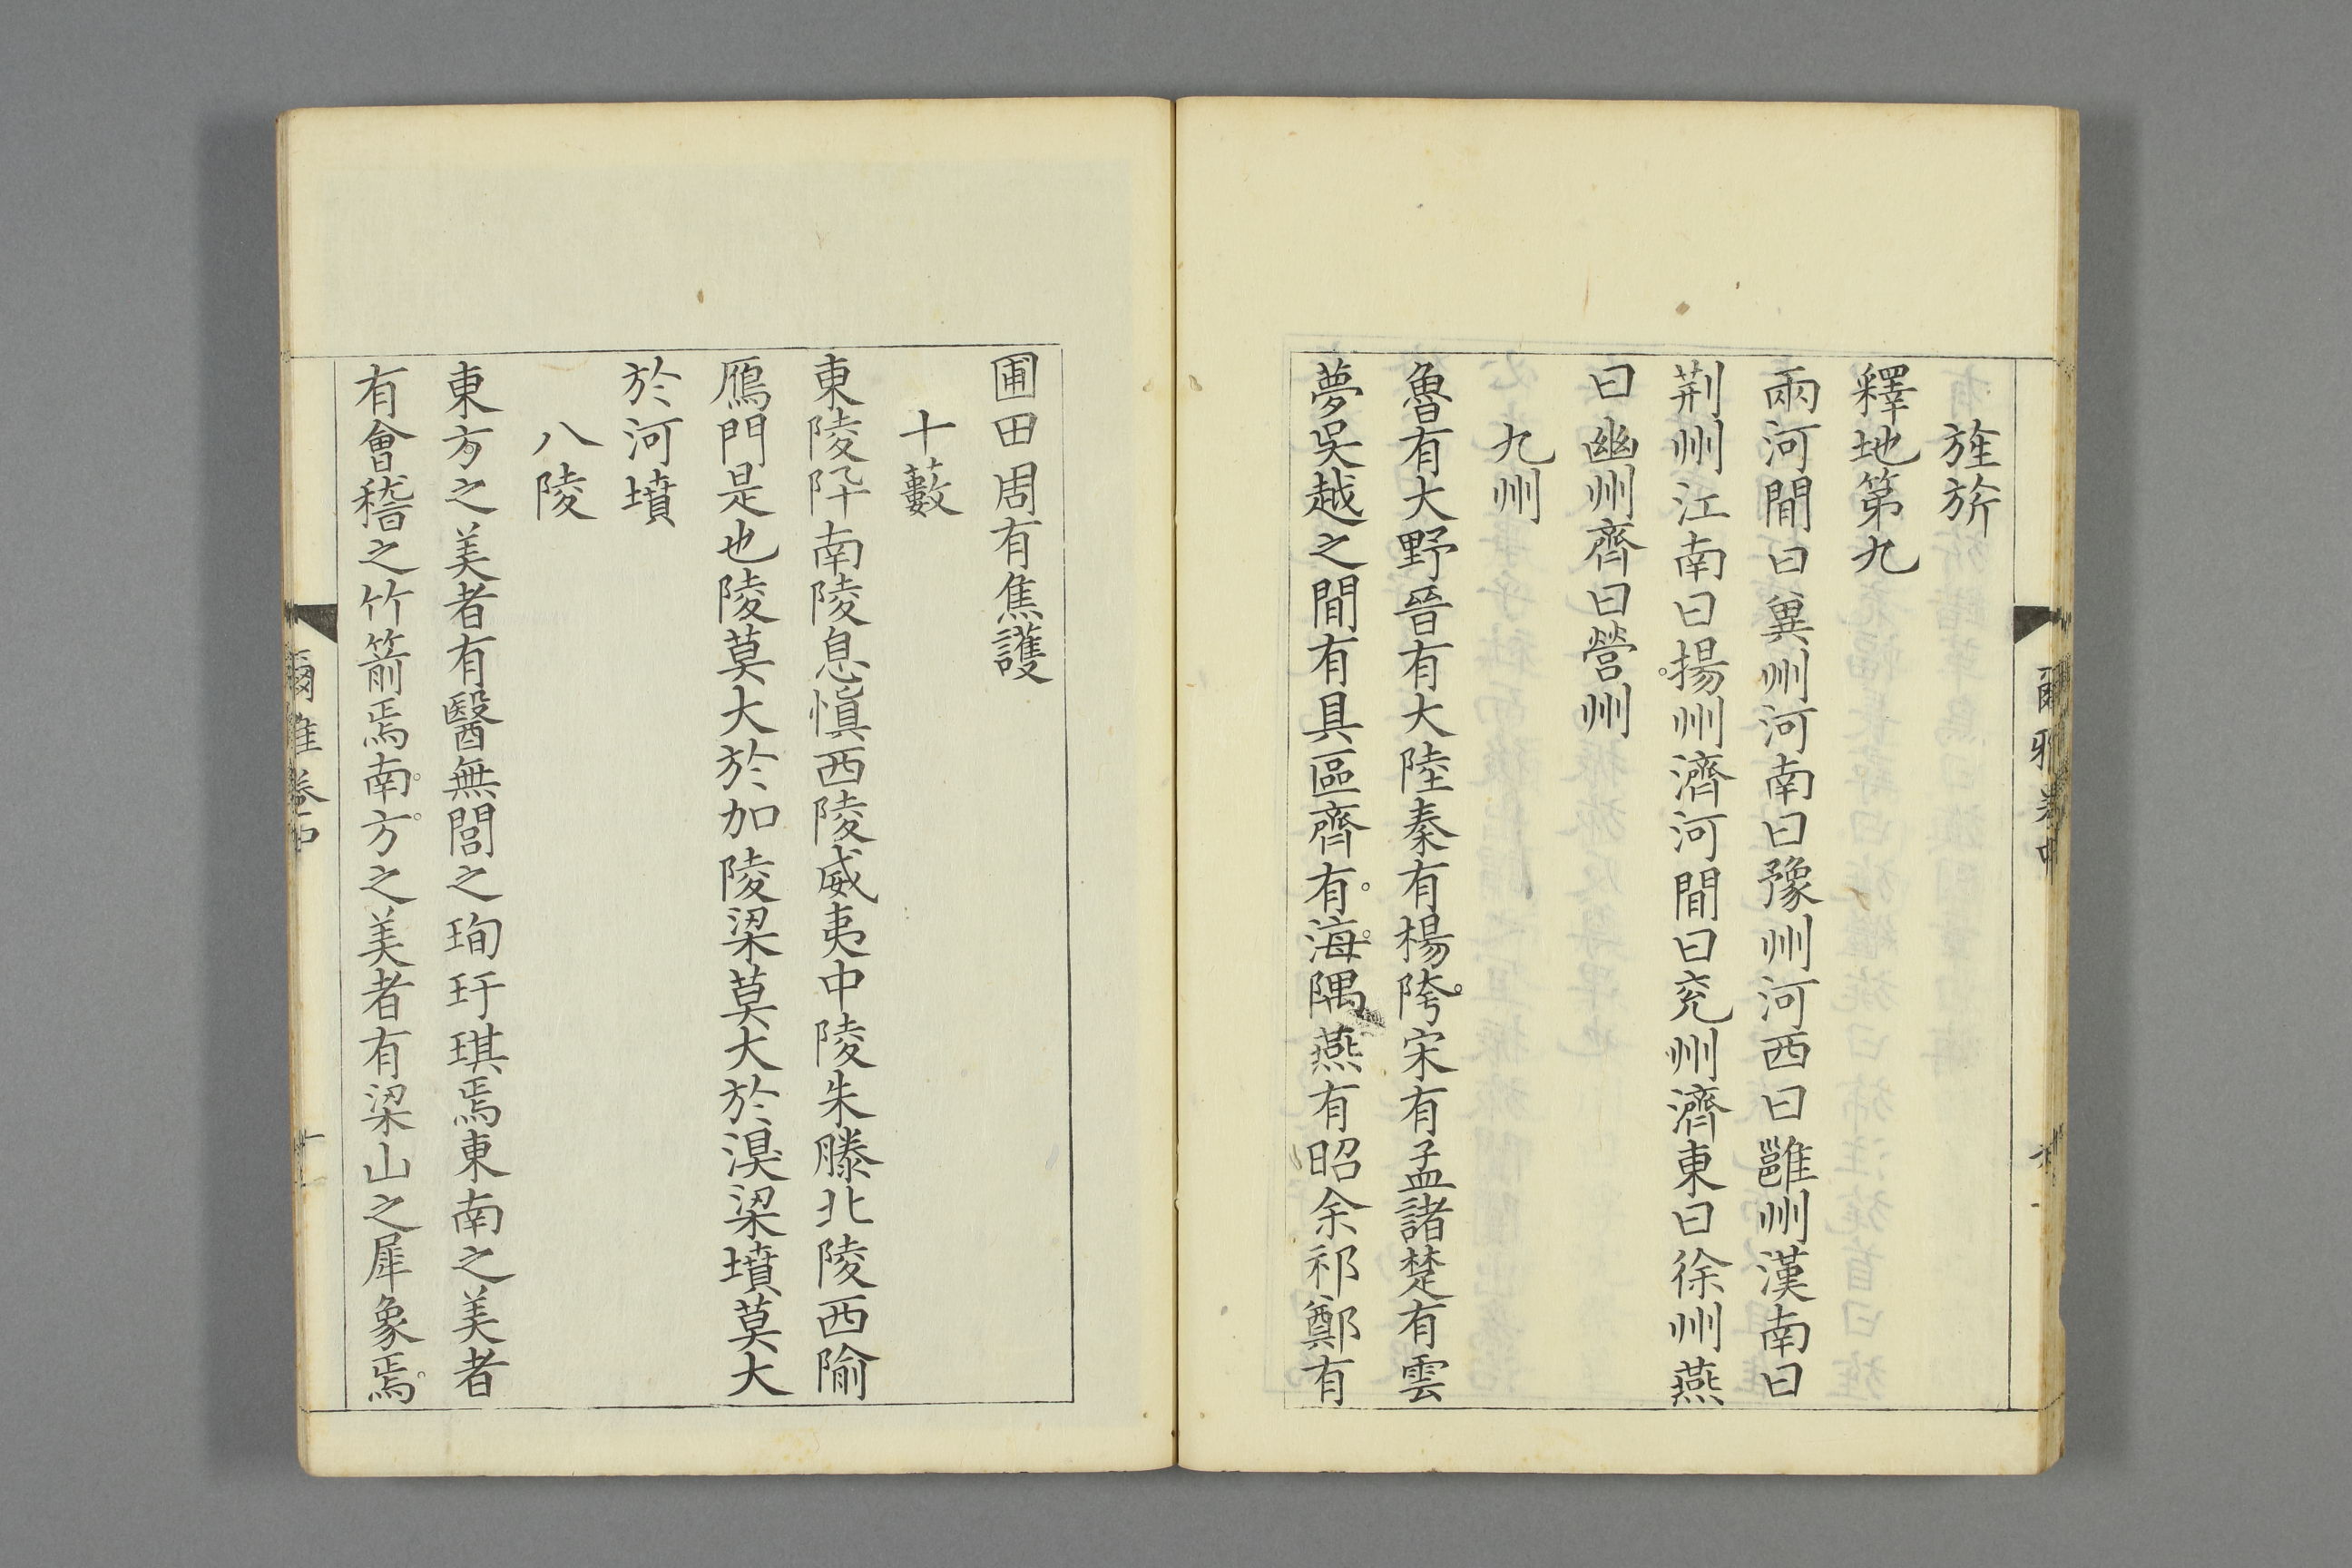 旌旂
釋地第九
兩河間曰冀州河南曰豫州河西曰雝州漢南曰
荆州江南曰揚州濟河間曰兖州濟東曰徐州燕
曰幽州齊曰營州
九州
魯有大野晉有大陸秦有楊陓宋有孟諸楚有雲
夢吳越之間有具區齊有海隅燕有昭余祁鄭有
圃田周有焦護
十藪
東陵阠南陵息愼西陵威夷中陵朱滕北陵西隃
鴈門是也陵莫大於加陵梁莫大於湨梁墳莫大
於河墳
八陵
東方之美者有醫無閭之珣玗琪焉東南之美者
有會稽之竹箭焉南方之美者有梁山之犀象焉
爾雅卷中
爾雅卷中